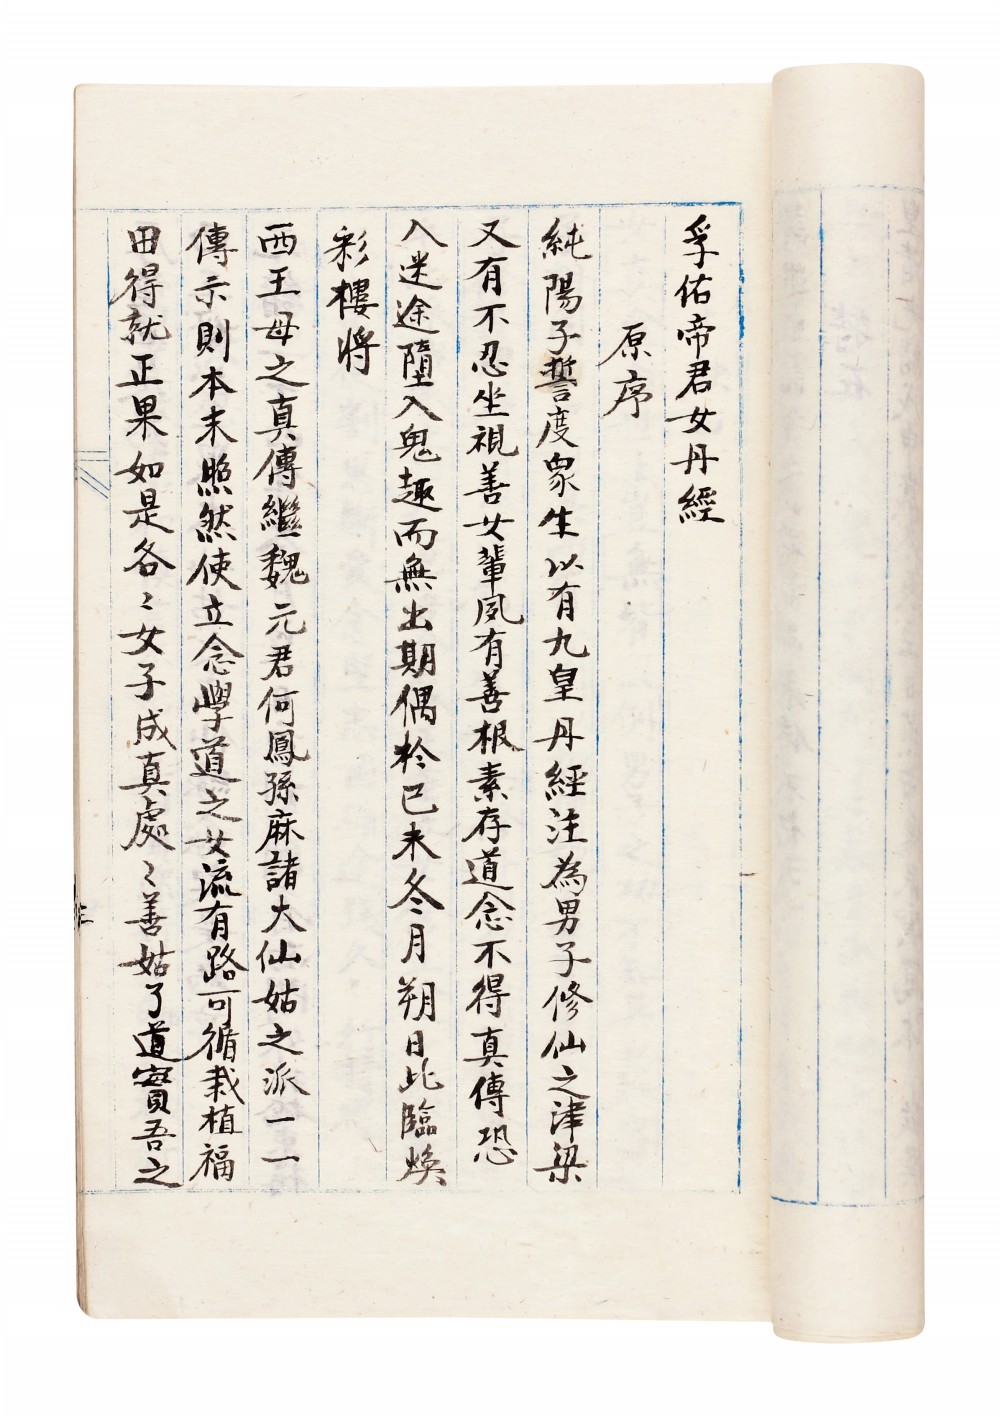 孚佑帝君女丹經
原序
純陽子誓度眾生以有九皇丹經注為男子修仙之津梁
又有不忍坐視善女輩夙有善根素存道念不得真傳恐
入迷途墮入鬼趣而無出期偶於己未冬月朔日此臨煥
彩樓將
西王母之真傳繼魏元君何鳳孫麻諸大仙姑之派一一
傳示則本末照然使立念學道之女流有路可循栽植福
田得就正果如是各〻女子成真處〻善姑了道實吾之